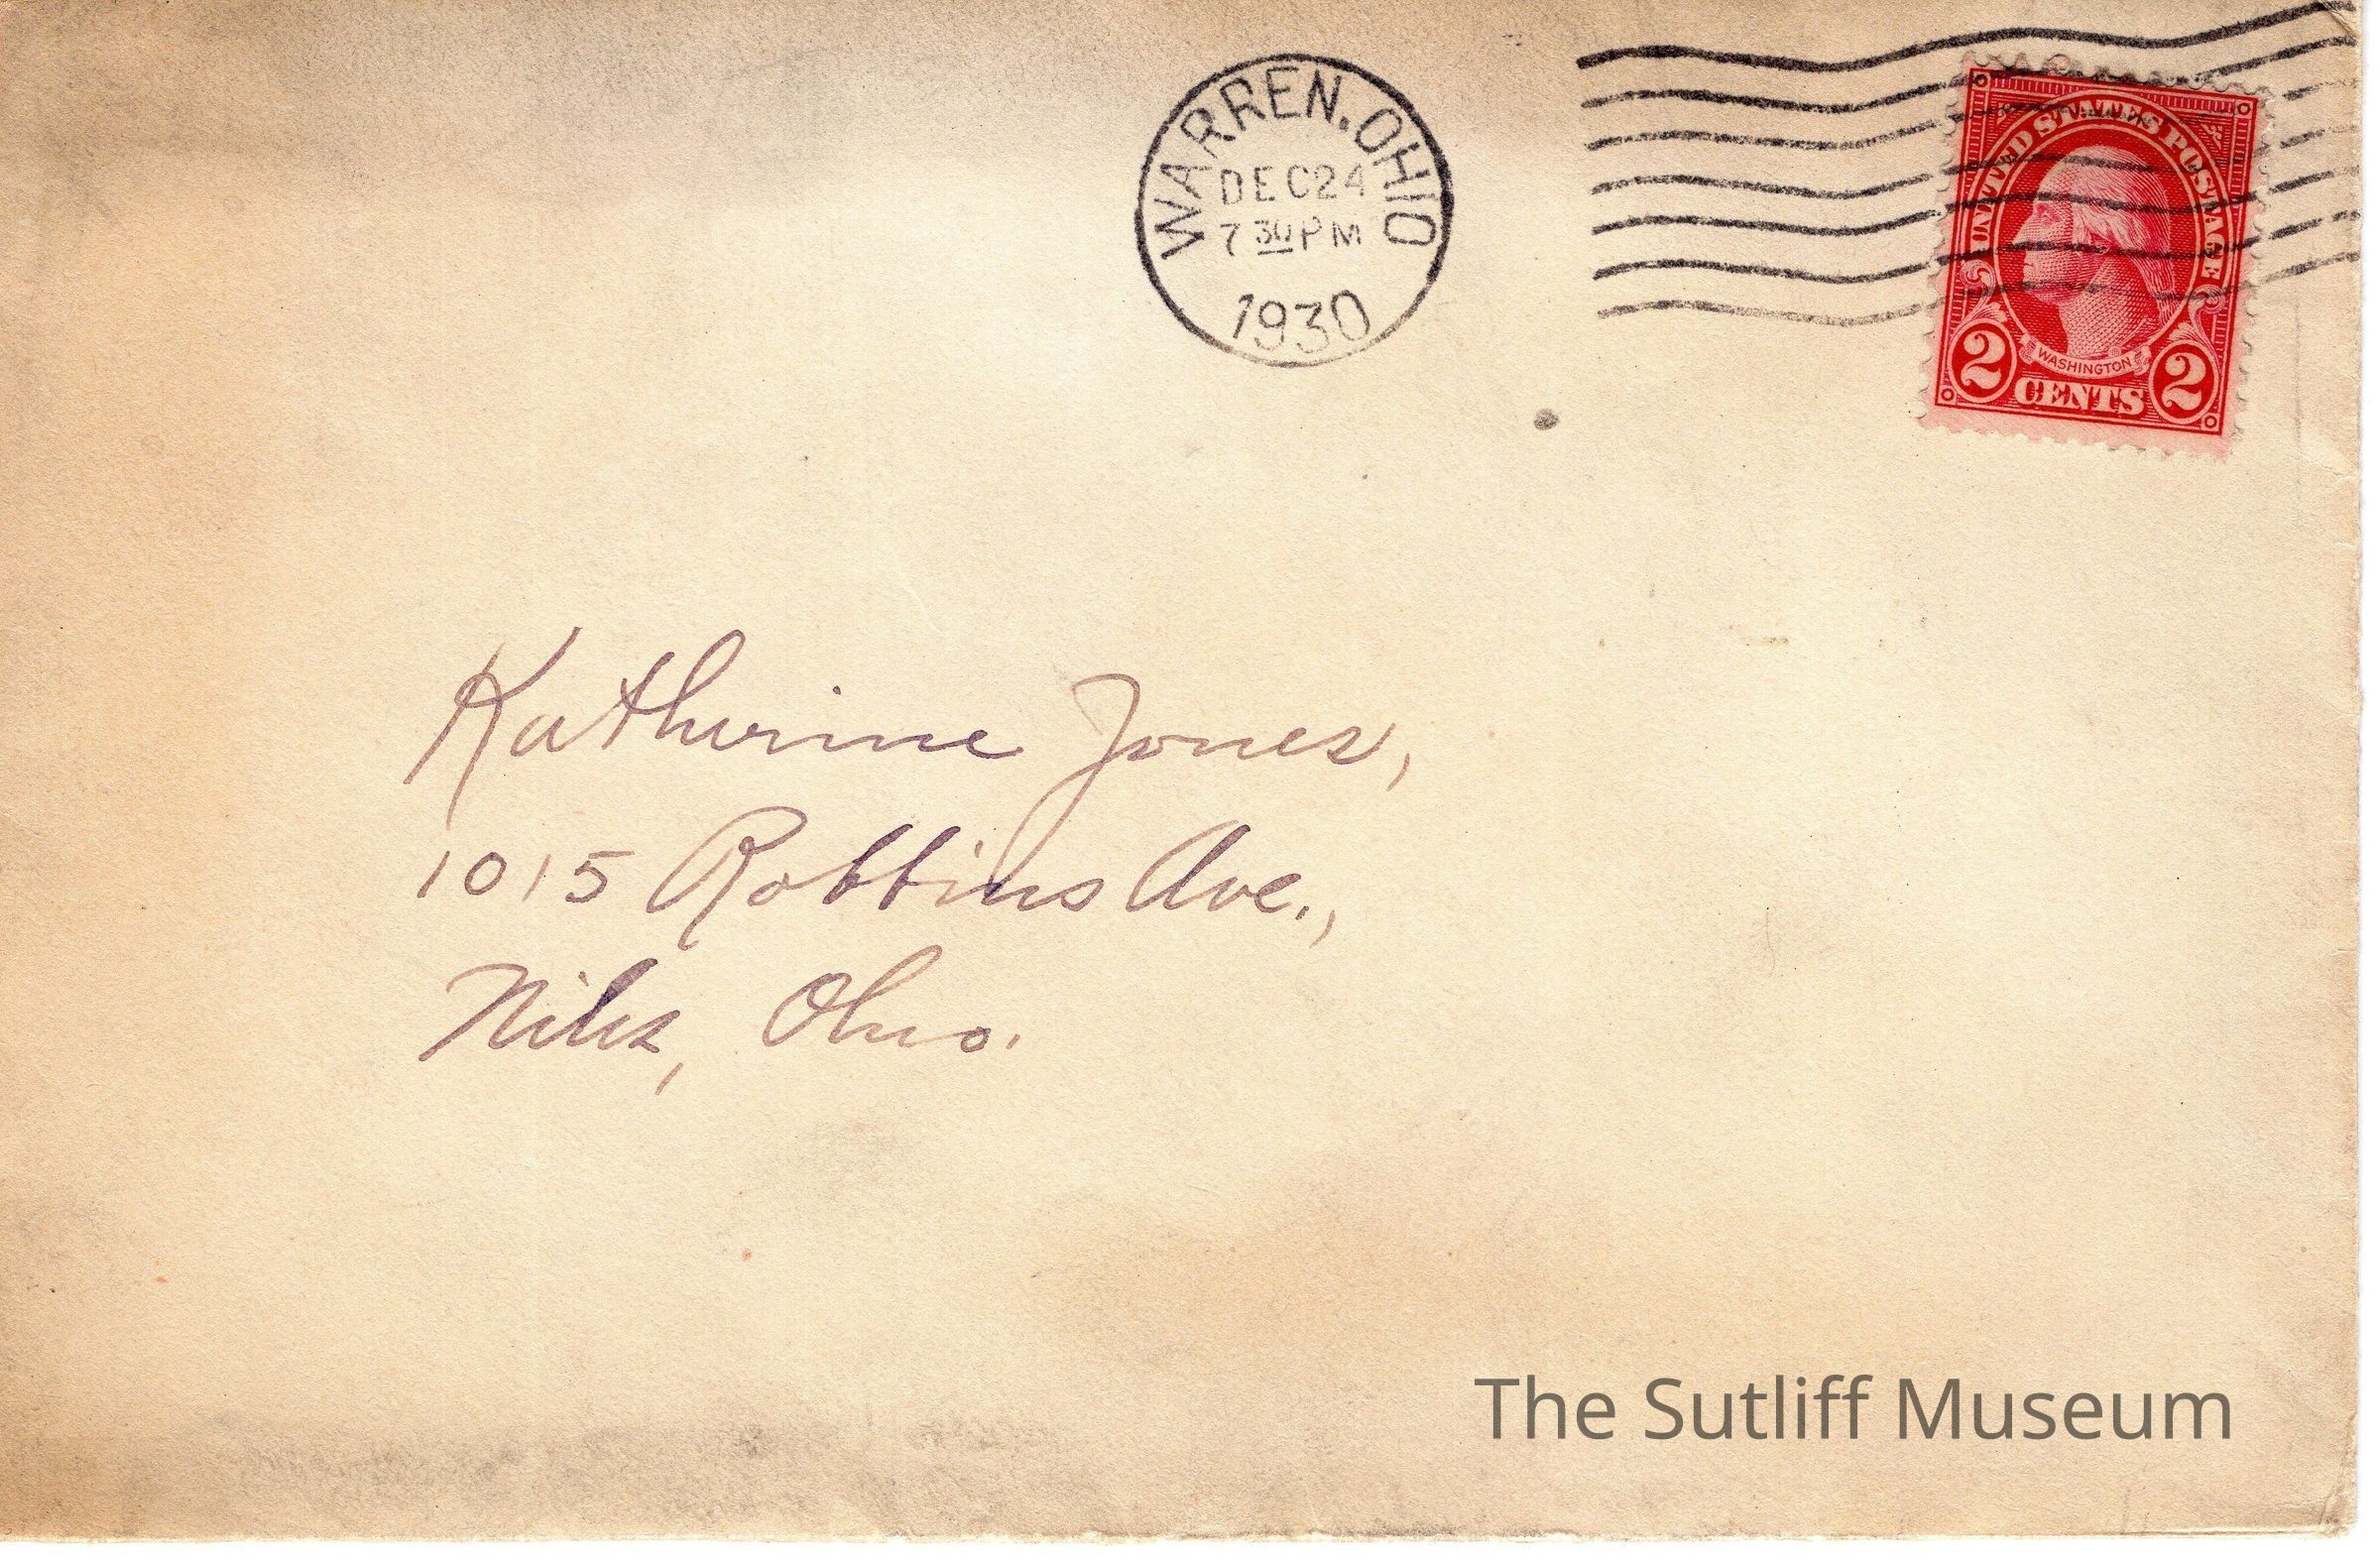 WARREN, OHIO
DEC 24
7 30 PM
1930
UNITED STATES POSTAGE
WASHINGTON
2 CENTS 2
Katherine Jones,
1015 Robbins Ave.,
Niles, Ohio.
The Sutliff Museum